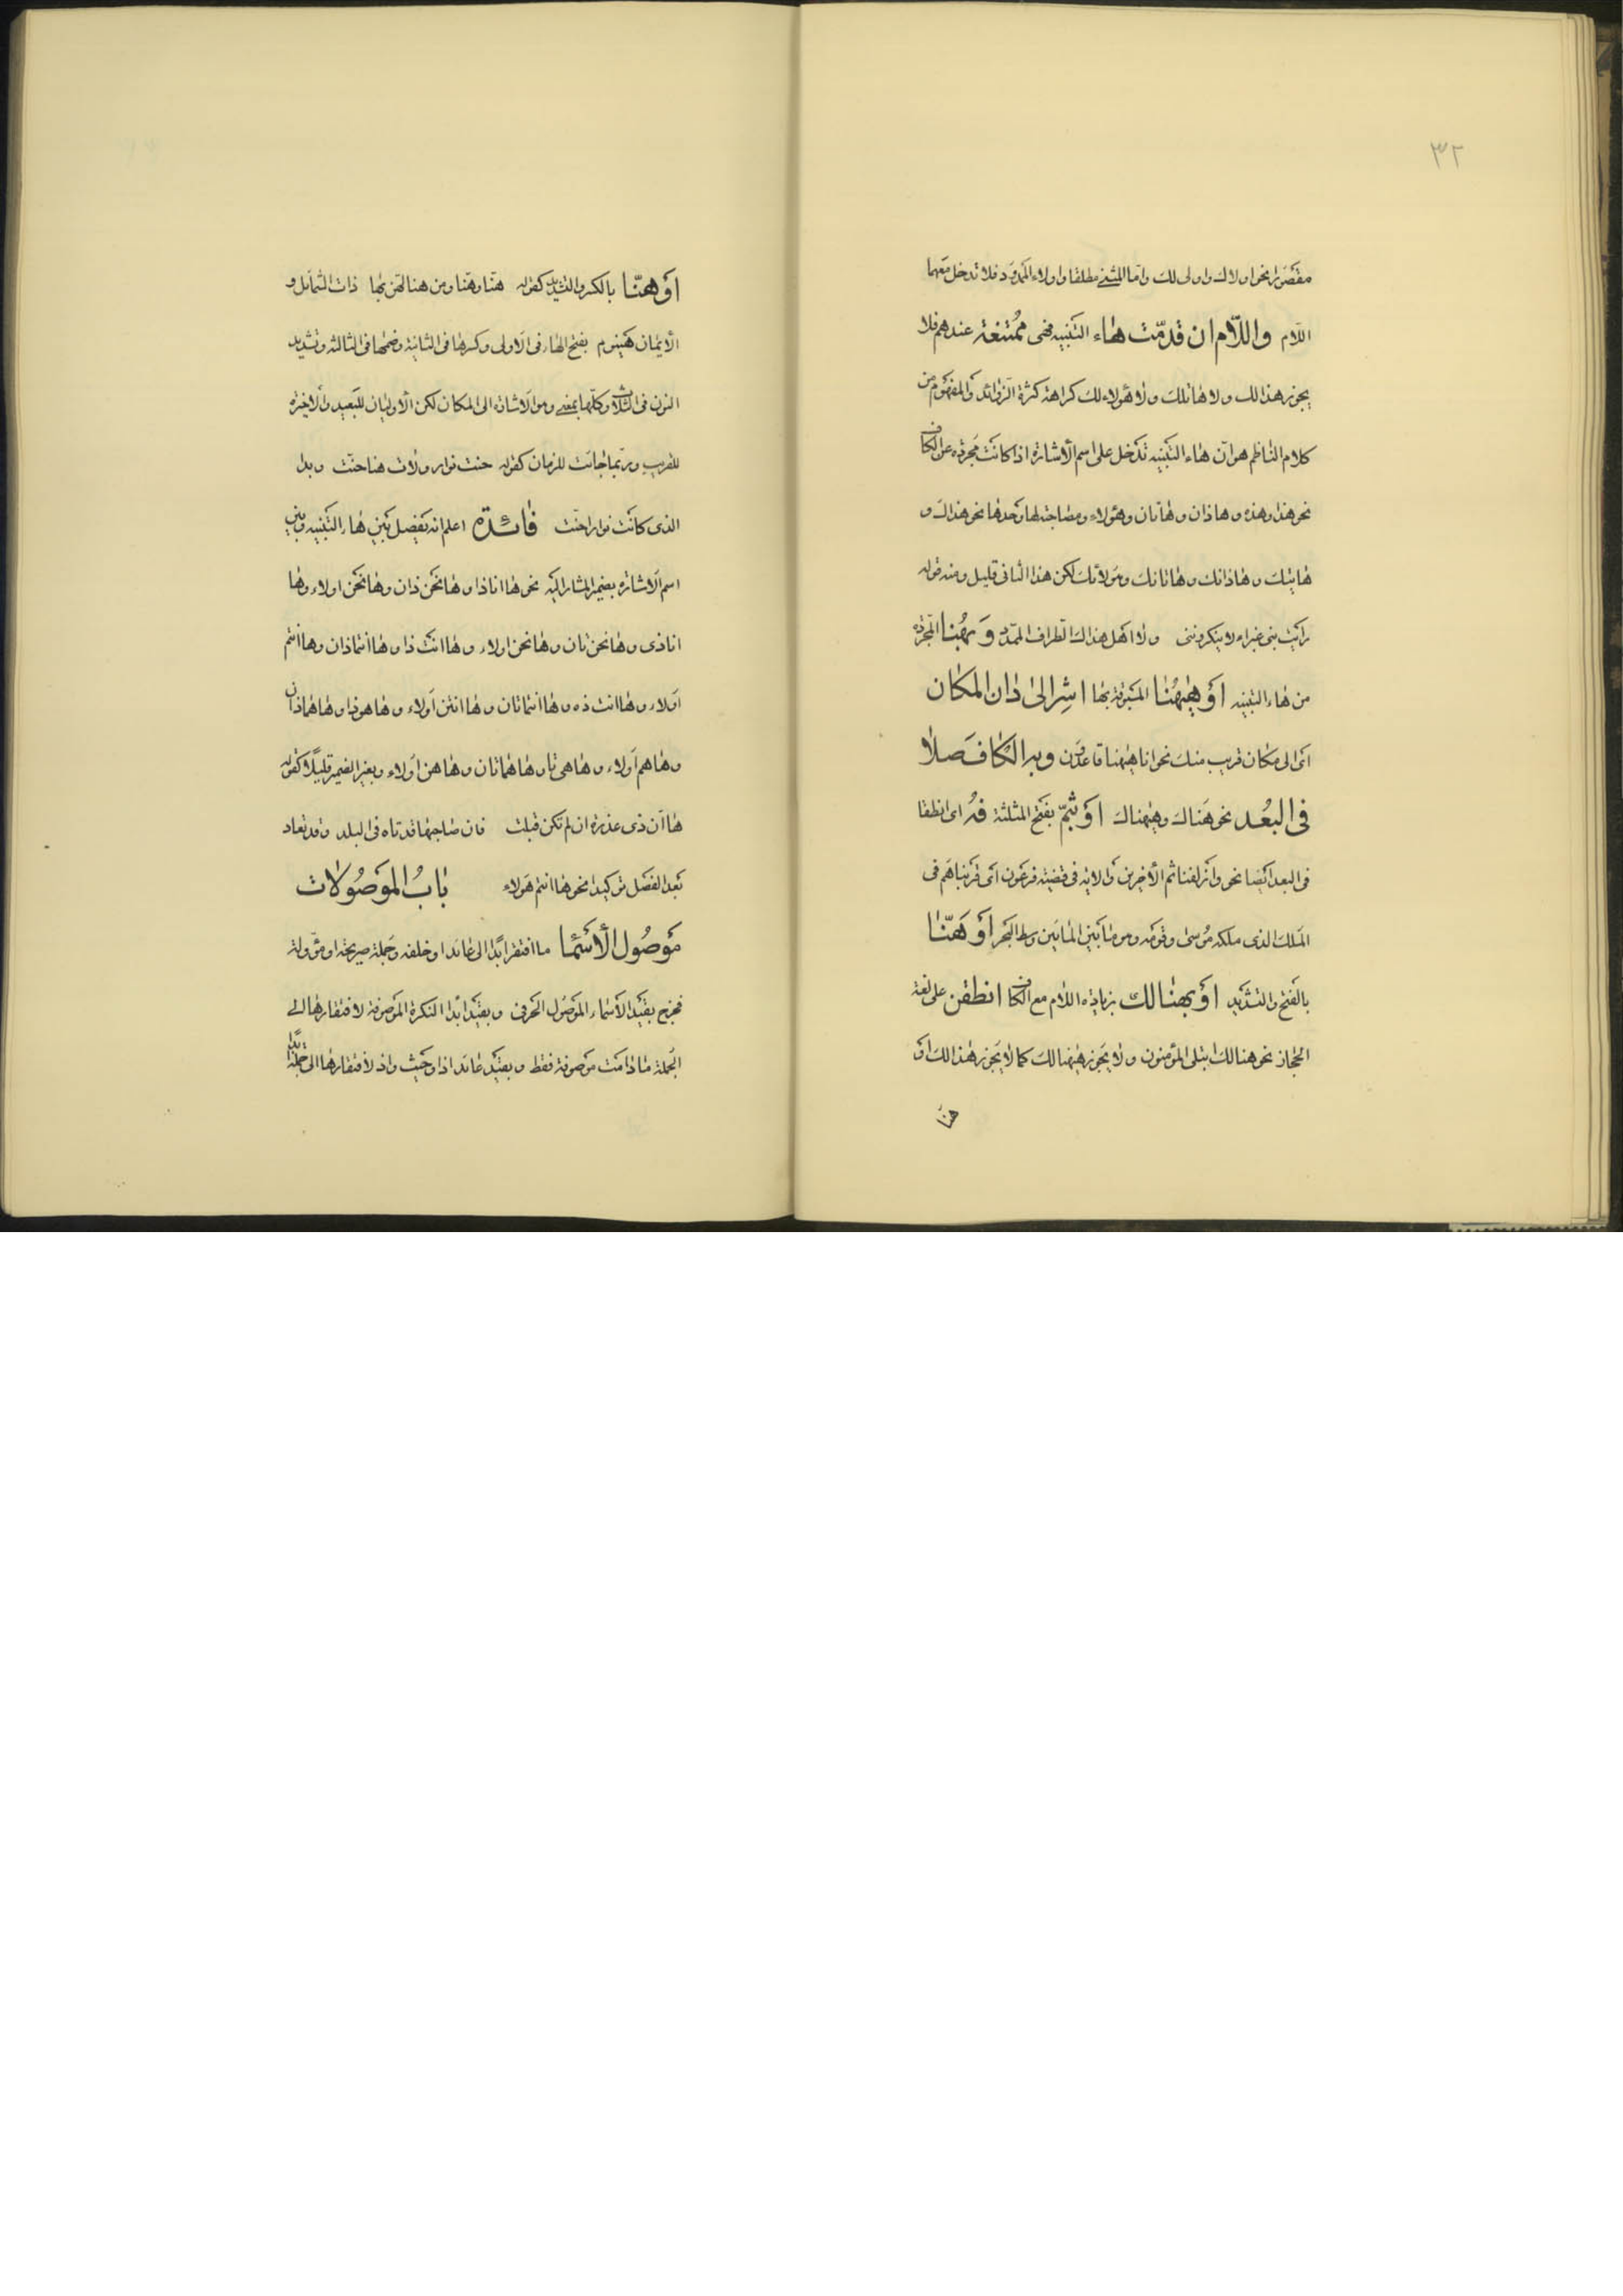 ٣٢
مقصورا نحو اولاك واولى لك واما المثنى مطلقا واولاء الممدود فلا تدخل معهما
اللام واللّام ان قدمّت هاء التنبيه فهى مُمتنعة عندهم فلا
يجوز هذالك ولا هاتالك ولا هؤلاء لك كراهة كثرة الزوائد والمفهوم من
كلام الناظم هو ان هاء التنبيه تدخل على اسم الأشارة اذا كانت مجردة عن الكاف
نحو هذا وهذه وهاذان وهاتان وهؤلاء ومصاحبة لها وحدها نحو هذاك و
هاتيك وهاذانك وهاتانك وهؤلائك لكن هذا الثانى قليل ومنه قوله
رايت بنى غبراء لا ينكروننى ولا اهل هذاك الطراف الممدد وَبهُنا المجردة
من هاء التنبيه اوَ هيٰهُنا المسبوقة بها اشِر الىٰ دٰان المكان
اى الى مكان قريب منك نحو انا هيٰهنا قاعدون وبه الكاف صلا
فى البُعد نحو هناك وهيٰهناك اوَ بثمّ بفتح المثلثة فُه اى انطقا
فى البعد ايضا نحو وازلفنا ثم الأخرين والاية فى قضية فرعون اى قربناهم فى
المسلك الذى سلكه موسى وقومه وهو ما بين المائين وسط البحر اوَ هَنّا
بالفتح والتشديد اوَ بهنالك بزيادة اللام مع الكاف انطقن على لغة
الحجاز نحو هنالك ابتلى المؤمنون ولا يجوز هيٰهنالك كما لا يجوز هذالك اوَ
هنّا
اوَ هِنّا بالكسر والتشديد كقوله هنّا وهنّا ومن هنا لهن بها ذات الشمائل و
الأيمان هينوم بفتح الهاء فى الاولى وكسرها فى الثانية وضمها فى الثالثه وتشديد
النون فى الثلاث وكلها بمعنى وهو الاشارة الى المكان لكن الأوليان للبعيد والأخيرة
للقريب وربما جائت للزمان كقوله حنت نوار ولات هنا حنّت وبدا
الذى كانت نوار اجنّت فائدة اعلم انه يفصل بين هاء التنبيه وبين
اسم الاشارة بضمير المشار اليه نحو ها انا ذا وها نحن ذان وها نحن اولاء وها
انا ذى وها نحن تان وها نحن اولاء وها انت ذا وها انتما ذان وها انتم
اولاء وها انت ذه وها انتما تان وها انتن اولاء وها هو ذا وها هما ذان
وها هم اولاء وها هى تا وها هما تان وها هن اولاء وبغير الضمير قليلًا كقوله
ها ان ذى عذرة ان لم تكن قبلت فان صاحبها قد تاه فى البلد وقد تعاد
بعد الفصل توكيدا نحو ها انتم هؤلاء بٰابُ الموَصُولٰات
موَصُول الأسَمٰا ما افتقر ابدًا الى عائد او خلفه وجملة صريحة او مؤولة
فخرج بقيد الاسماء الموصول الحرفى وبقيد ابدا النكرة الموصوفة لافتقارها الى
الجملة ما دامت موصوفة فقط وبقيد عائد اذا وحيث واذ لافتقارها الى جملة ابدًا